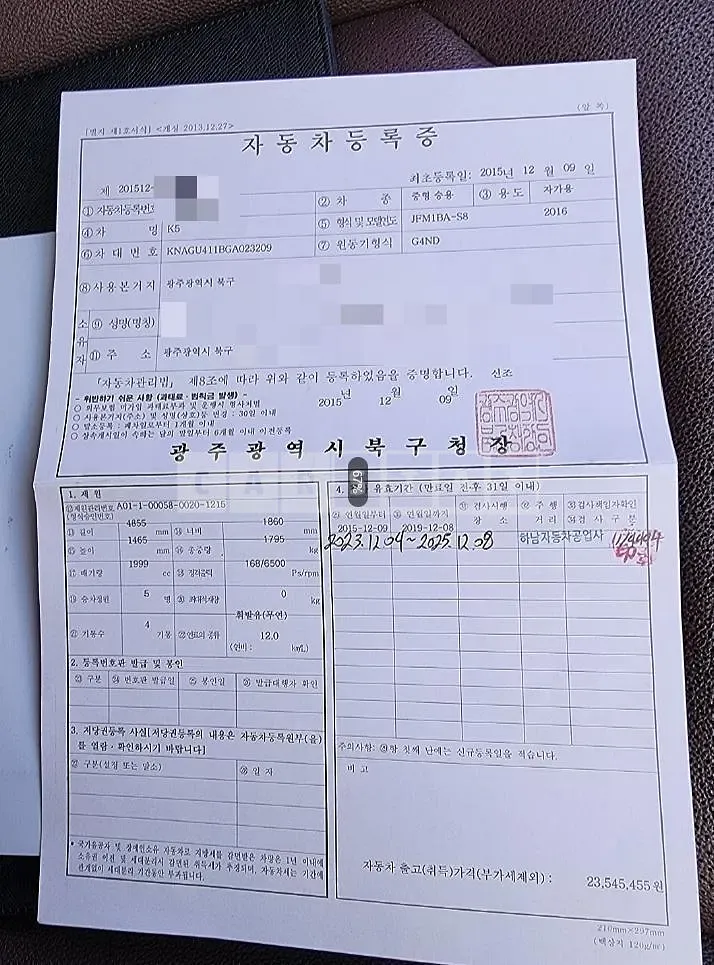 [별지 제1호서식] <개정 2013.12.27>
(앞 쪽)
자동차등록증
제 201512-
최초등록일: 2015년 12월 09일
① 자동차등록번호
② 차종 중형 승용 ③ 용도 자가용
④ 차명 K5
⑤ 형식 및 모델연도 JFM1BA-S8 2016
⑥ 차대번호 KNAGU411BGA023209
⑦ 원동기형식 G4ND
⑧ 사용본거지 광주광역시 북구
소유자
⑨ 성명(명칭)
⑪ 주소 광주광역시 북구
「자동차관리법」 제8조에 따라 위와 같이 등록하였음을 증명합니다. 신조
- 위반하기 쉬운 사항 (과태료·범칙금 발생) -
○ 의무보험 미가입 과태료부과 및 운행시 형사처벌
○ 사용본거지(주소) 및 성명(상호)등 변경 : 30일 이내
○ 말소등록 : 폐차일로부터 1개월 이내
○ 상속개시일이 속하는 달의 말일부터 6개월 이내 이전등록
2015년 12월 09일
광주광역시북구청장
67%
1. 제원
⑫ 제원관리번호 (형식승인번호) A01-1-00058-0020-1215
⑬ 길이 4855 mm ⑭ 너비 1860 mm
⑮ 높이 1465 mm ⑯ 총중량 1795 kg
⑰ 배기량 1999 cc ⑱ 정격출력 168/6500 Ps/rpm
⑲ 승차정원 5 명 ⑳ 최대적재량 0 kg
㉑ 기통수 4 기통 ㉒ 연료의 종류 휘발유(무연)
(연비 : 12.0 km/L)
2. 등록번호판 발급 및 봉인
㉓ 구분 ㉔ 번호판 발급일 ㉕ 봉인일 ㉖ 발급대행자 확인
3. 저당권등록 사실[저당권등록의 내용은 자동차등록원부(을)
를 열람·확인하시기 바랍니다]
㉗ 구분(설정 또는 말소) ㉘ 일자
* 국가유공자 및 장애인소유 자동차로 지방세를 감면받은 차량은 1년 이내에
소유권 이전 및 세대분리시 감면된 취득세가 추징되며, 자동차세는 기간에
관계없이 세대분리 기간동안 부과됩니다.
4. 유효기간 (만료일 전·후 31일 이내)
㉙ 연월일부터 ㉚ 연월일까지 ㉛ 검사시행장소 ㉜ 주행거리 ㉝ 검사책임자확인 ㉞ 검사구분
2015-12-09 2019-12-08
2023.12.09~2025.12.08 하남자동차공업사
주의사항: ㉙항 첫째 난에는 신규등록일을 적습니다.
비고
자동차 출고(취득)가격(부가세제외) : 23,545,455원
210mm×297mm
(백상지 120g/㎡)